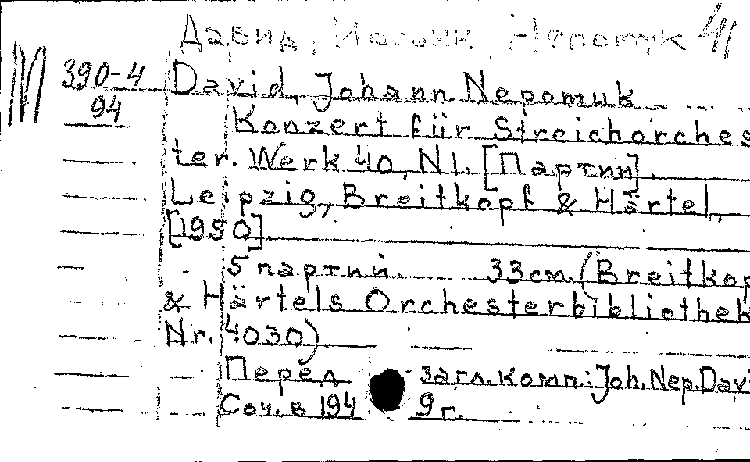 Давид, Иоганн Непомук
390-4 David, Johann Nepomuk
94 Konzert für Streichorches
ter. Werk 40, N1. [Партии].
Leipzig, Breitkopf & Härtel,
[1950]
5 партий. 33см. (Breitkop
& Härtels Orchesterbibliothek
Nr. 4030)
Перед загл. комп.: Joh. Nep. Davi
Соч. в 1949 г.